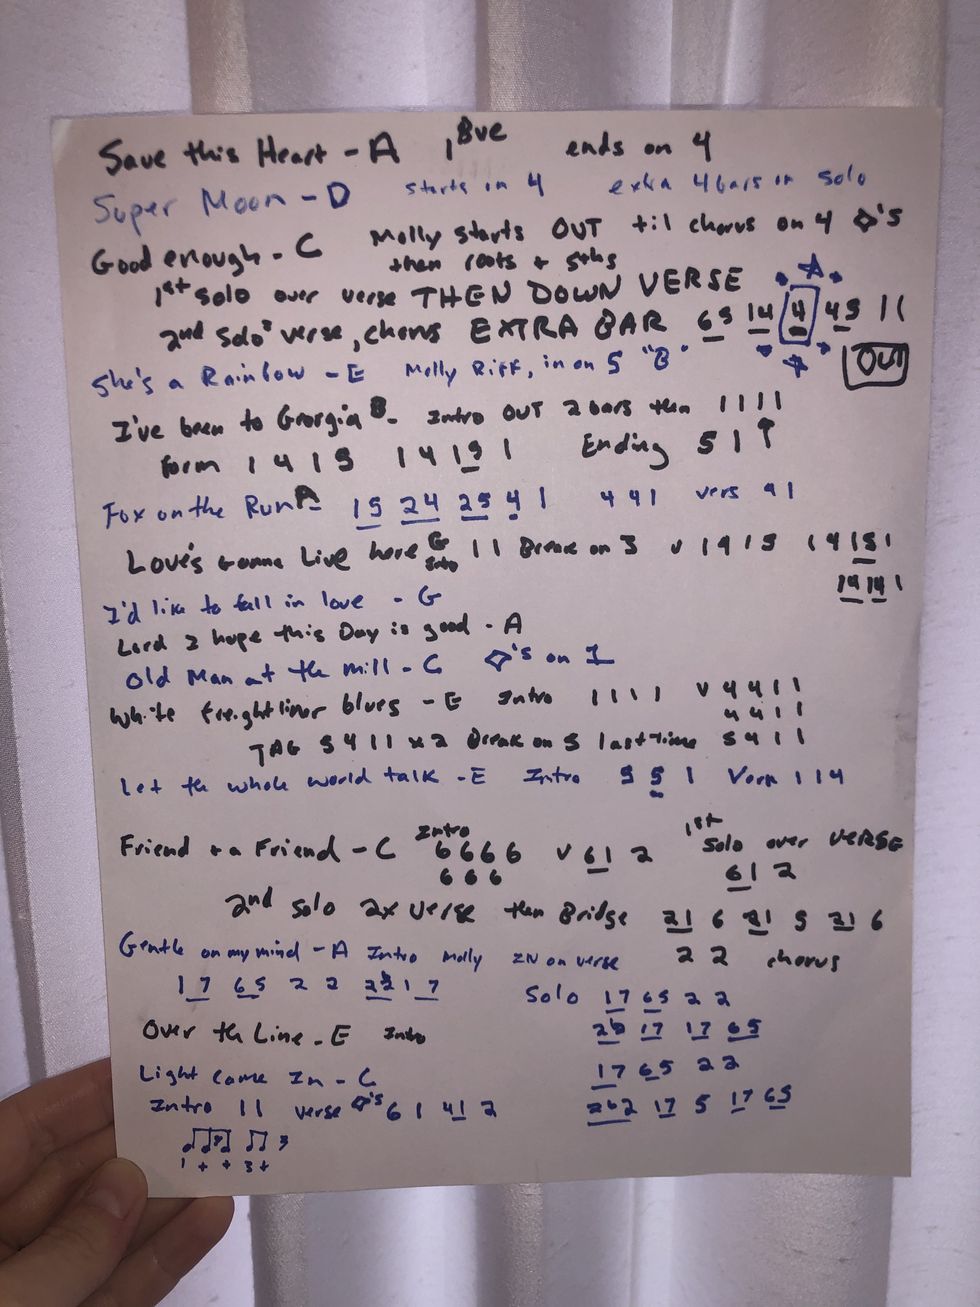 Save this Heart - A 1 8ve ends on 4
Super Moon - D starts in 4 extra 4 bars in solo
Good enough - C Molly starts OUT til chorus on 4 ◇'s
then roots + 5ths
1st solo over verse THEN DOWN VERSE
2nd solo verse, chorus EXTRA BAR 65 14 4 45 11
OUT
She's a Rainbow - E Molly Riff, in on 5 "B"
I've been to Georgia B - Intro OUT 2 bars then 1 1 1 1
form 1 4 1 5 1 4 15 1 Ending 5 1 ↑
Fox on the Run A - 15 24 25 4 1 4 4 1 vers 4 1
Love's Gonna Live here G Intro 1 1 Break on 5 v 1 4 1 5 1 4 15 1
14 14 1
I'd like to fall in love - G
Lord I hope this Day is good - A
Old Man at the mill - C ◇'s on 1
White freightliner blues - E Intro 1 1 1 1 v 4 4 1 1
4 4 1 1
TAG 5 4 1 1 x2 Break on 5 last time 5 4 1 1
Let the whole world talk - E Intro 5 5 1 Vers 1 1 4
Friend to a Friend - C Intro 6 6 6 6 v 61 2 1st solo over VERSE
6 6 6 61 2
2nd solo 2x verse then Bridge 21 6 21 5 21 6
2 2 chorus
Gentle on my mind - A Intro Molly IN on verse
1 7 65 2 2 1 7
Solo 17 65 2 2
Over the Line - E Intro
17 17 65
Light came In - C
17 65 2 2
Intro 11 verse ◇'s 6 1 41 2
17 5 17 65
1 + + 3 +